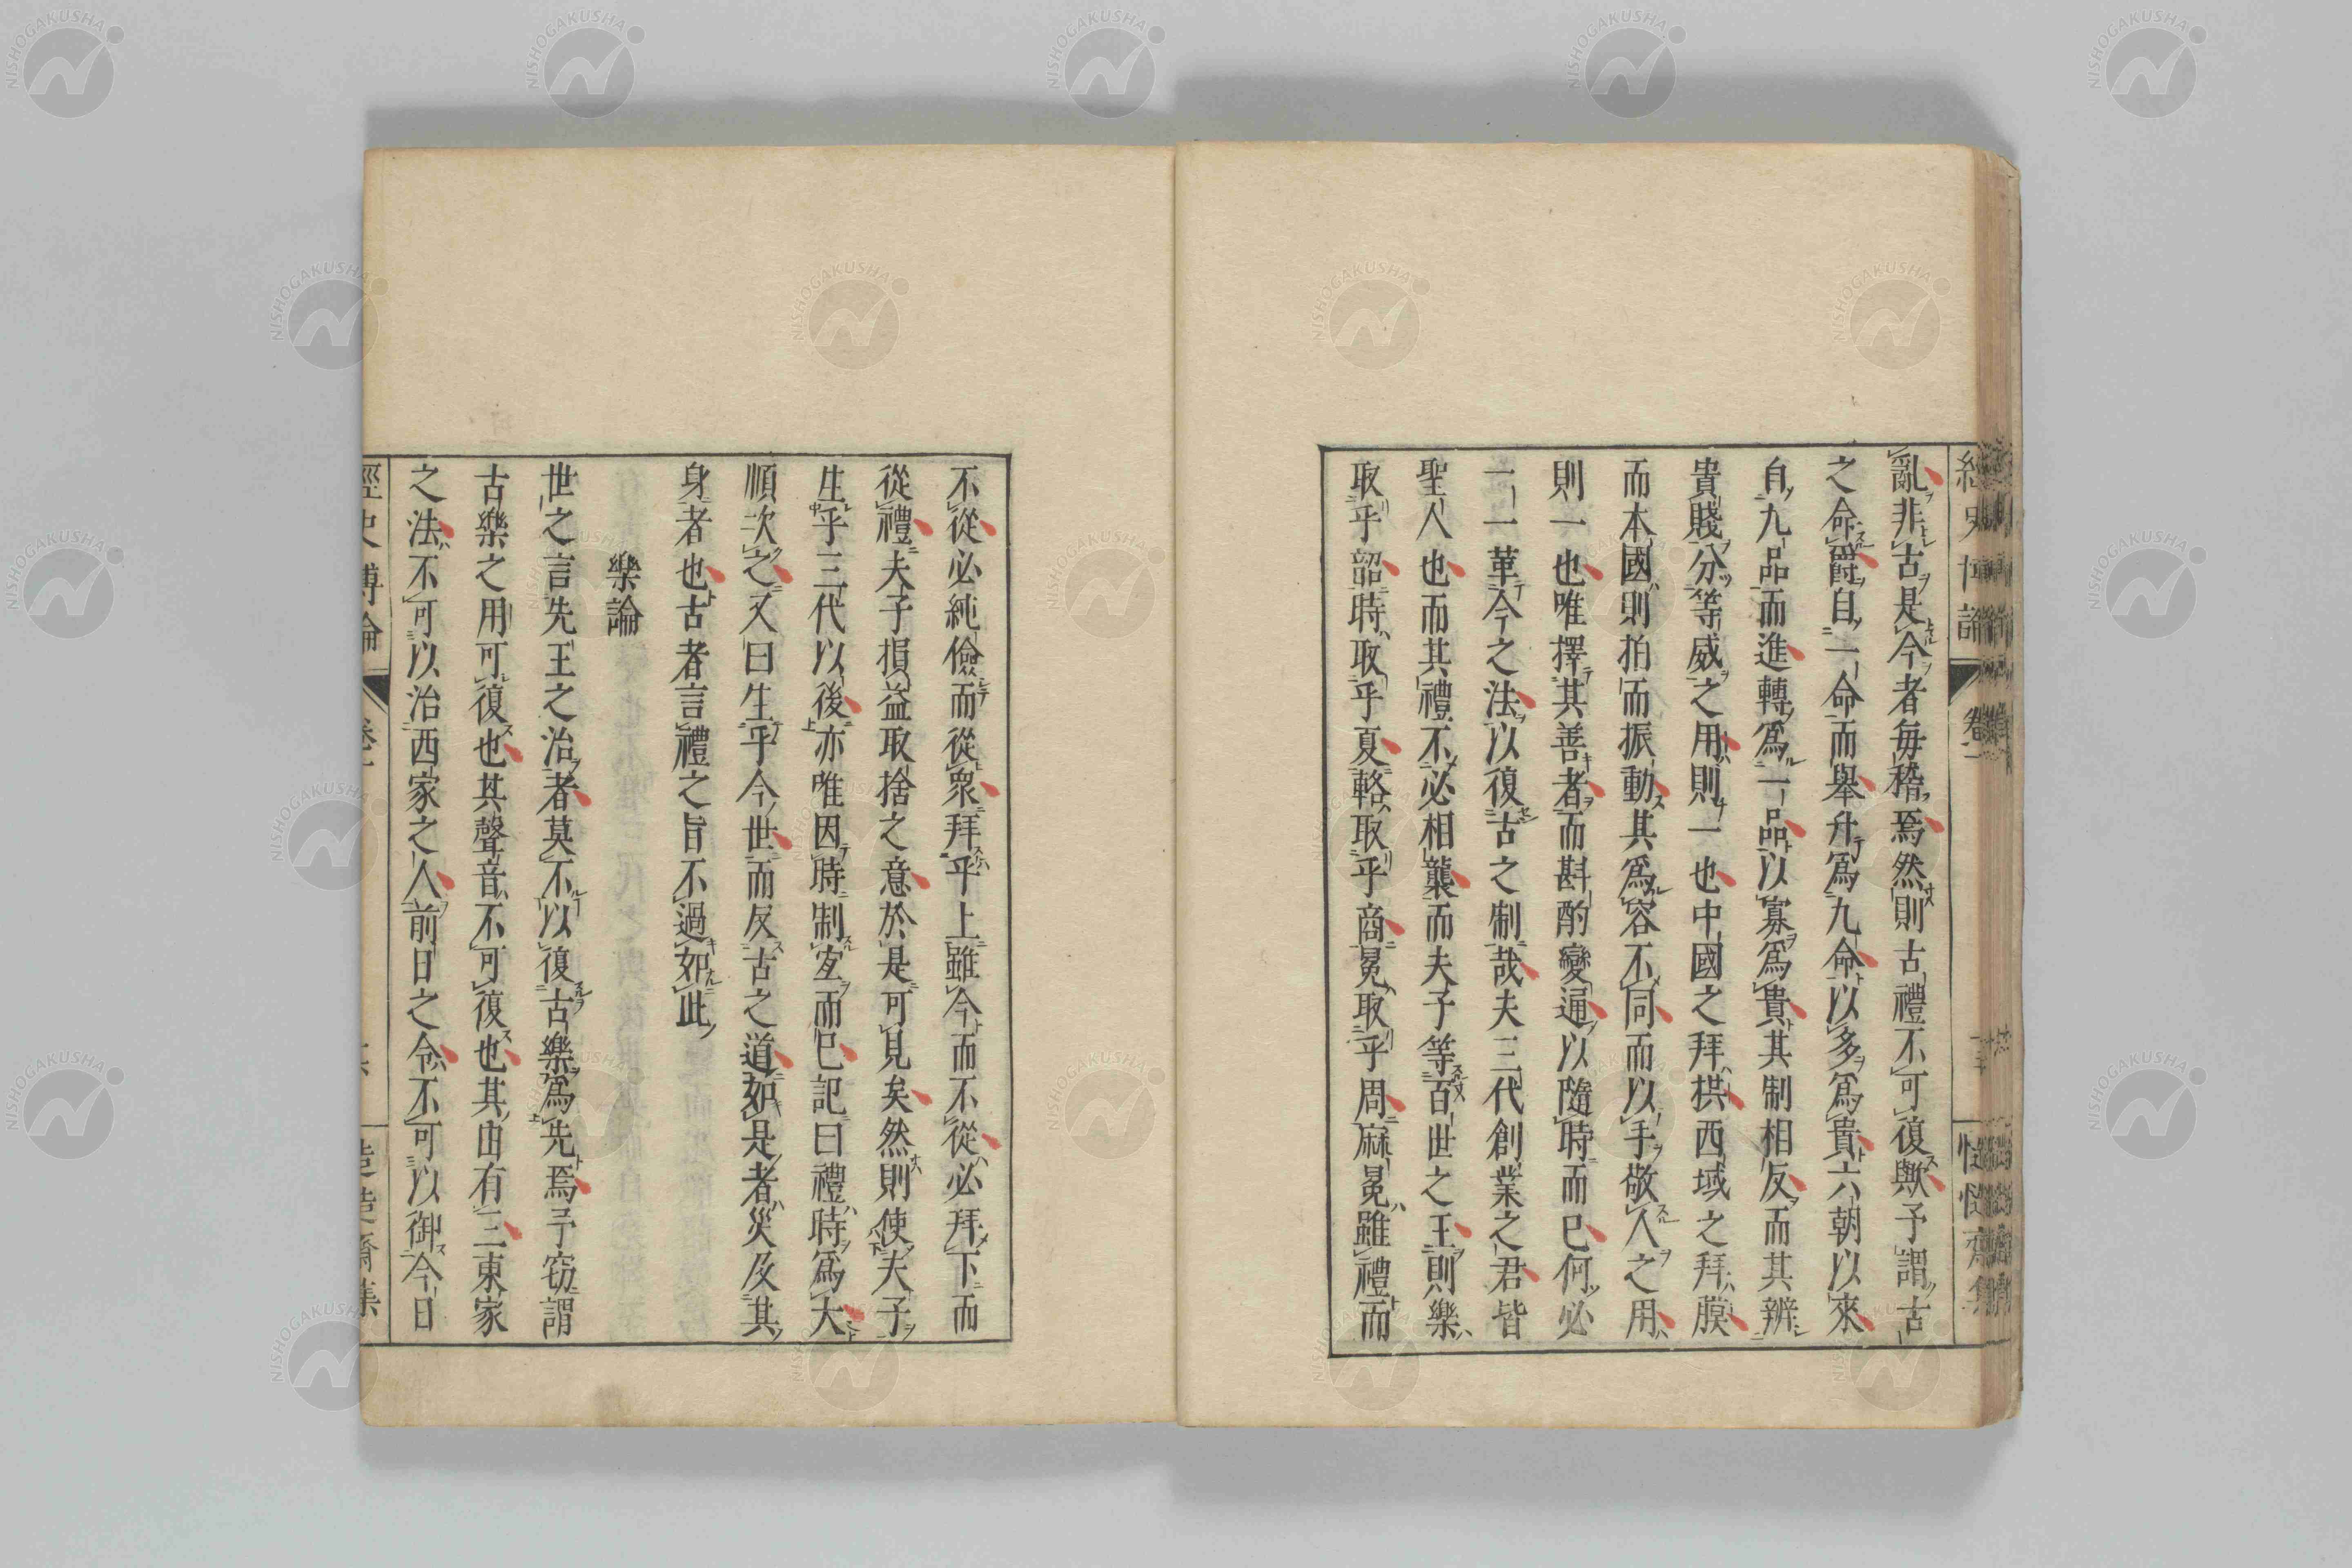 亂非古是今者每稽焉然則古禮不可復歟予謂古
之命爵自一命而舉升爲九命以多爲貴六朝以來
自九品而進轉爲一品以寡爲貴其制相反而其辨
貴賤分等威之用則一也中國之拜拱西域之拜膜
而本國則拍而振動其爲容不同而以手敬人之用
則一也唯擇其善者而斟酌變通以隨時而已何必
一一革今之法以復古之制哉夫三代創業之君皆
聖人也而其禮不必相襲而夫子等百世之王則樂
取乎韶時取乎夏輅取乎商冕取乎周麻冕雖禮而
不從必純儉而從衆拜乎上雖今而不從必拜下而
從禮夫子損益取捨之意於是可見矣然則使夫子
生乎三代以後亦唯因時制宜而已記曰禮時爲大
順次之又曰生乎今世而反古之道如是者災及其
身者也古者言禮之旨不過如此
樂論
世之言先王之治者莫不以復古樂爲先焉予窃謂
古樂之用可復也其聲音不可復也其由有三東家
之法不可以治西家之人前日之令不可以御今日
經史博論
卷一
NISHOGAKUSHA